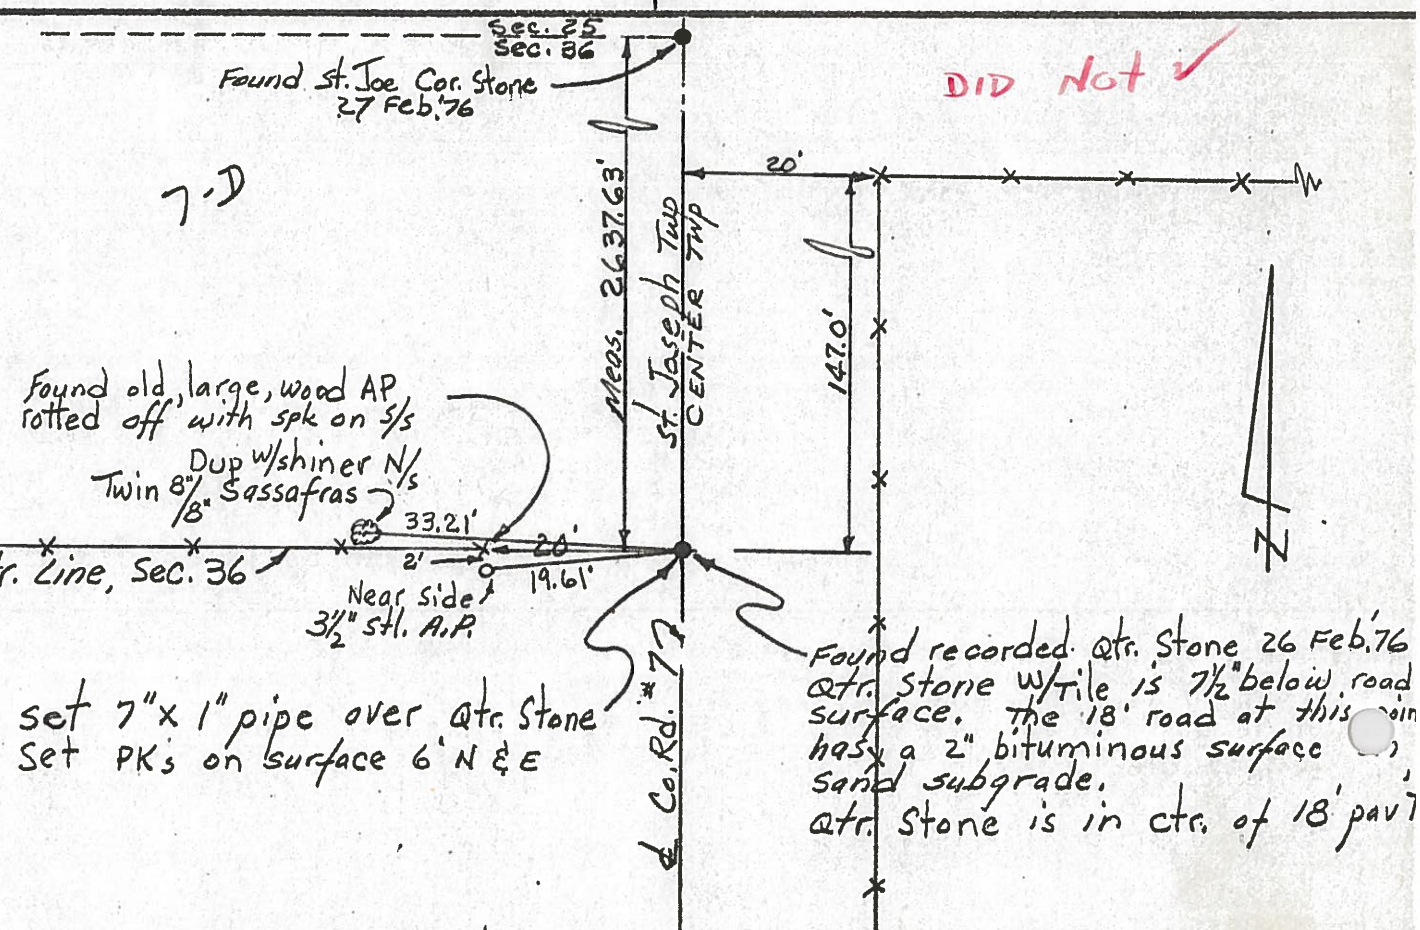 Sec. 25
Sec. 36
Found St. Joe Cor. Stone
27 Feb.'76
DID Not ✓
7-D
20'
Meas. 2637.63'
St. Joseph Twp
CENTER TWP
147.0'
Found old, large, wood AP
rotted off with spk on S/s
Dup w/shiner N/s
Twin 8"/8" Sassafras
33.21'
20'
2'
19.61'
r. Line, Sec. 36
Near side
3½" stl. A.P.
N
set 7" x 1" pipe over Qtr. Stone
Set PKs on surface 6' N & E
℄ Co. Rd. #7
Found recorded Qtr. Stone 26 Feb.'76
Qtr. Stone W/Tile is 7½" below road
surface. The 18' road at this
has a 2" bituminous surface
sand subgrade.
Qtr. Stone is in ctr. of 18' pav'